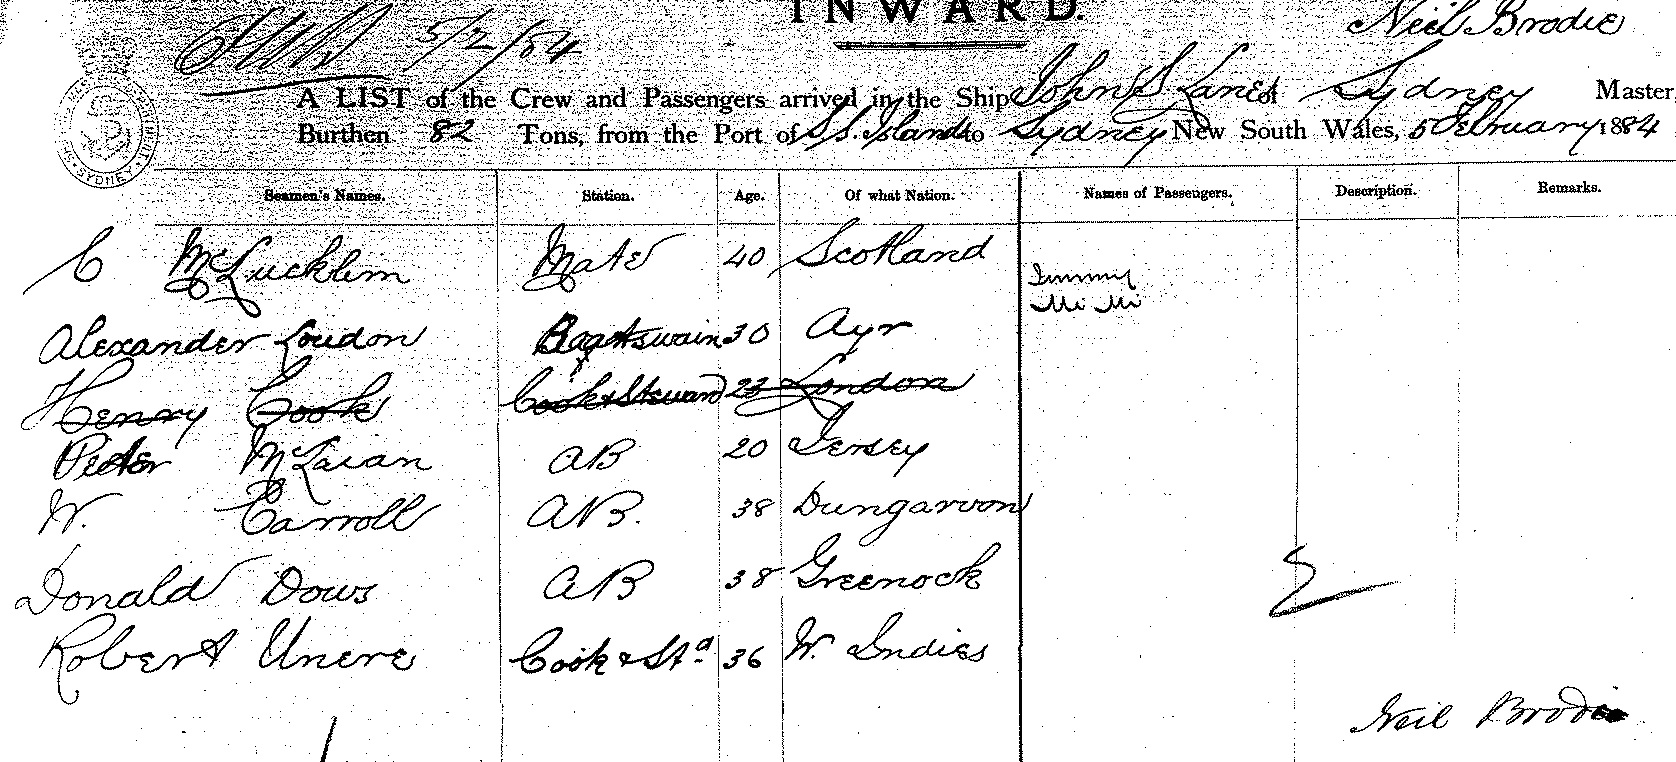 INWARD.
5/2/84
Neil Brodie
A LIST of the Crew and Passengers arrived in the Ship John S Lane of Sydney Master
Burthen 82 Tons, from the Port of S.S. Islands to Sydney New South Wales, 5 February 1884
Seamen's Names. Station. Age. Of what Nation. Names of Passengers. Description. Remarks.
C McLucklim Mate 40 Scotland
Jimmy
Mi Mi
Alexander Loudon Boatswain 30 Ayr
Henry Cook Cook & Steward 23 London
Peter McLaian AB 20 Jersey
W. Carroll AB. 38 Dungarvon
Donald Dows AB 38 Greenock
Robert Unere Cook & Std 36 W. Indies
Neil Brodie